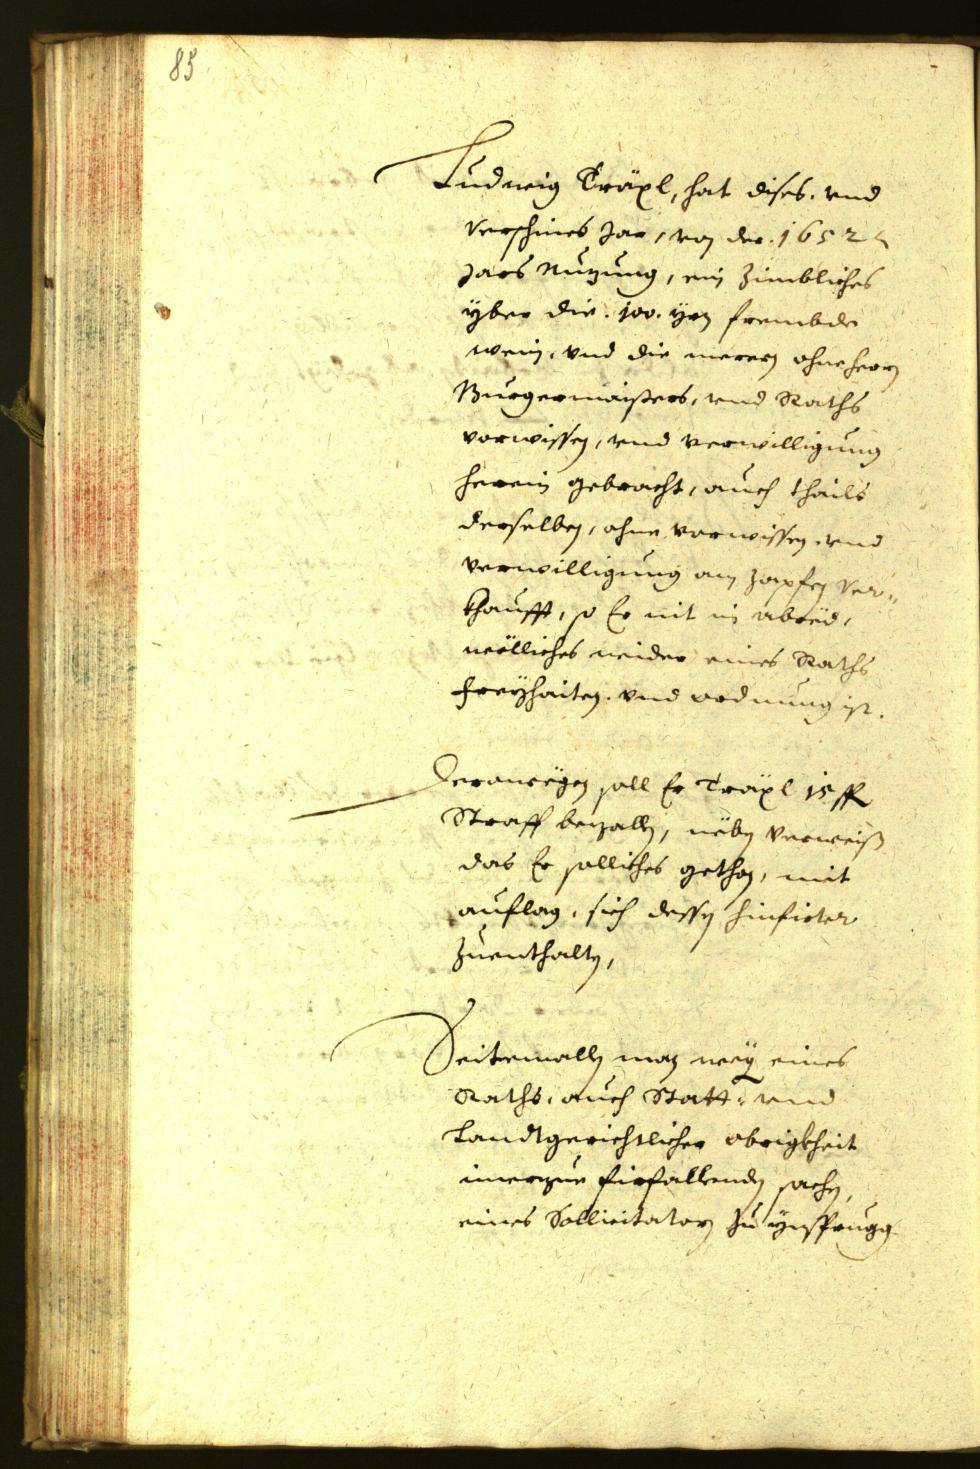 85
Ludwig Träxl, hat dises, vnd
verschines Jar, von der 1652
Jars Nuzung, ein zimbliches
yber die 100. yrn frembde
wein, vnd die merern ohne herrn
Burgermaisters, vnd Raths
vorwissen, vnd verwilligung
herein gebracht, auch thails
derselben, ohne vorwissen, vnd
verwilligung am zapfen ver„
khaufft, so Er nit in abred,
welliches wider eines Raths
freyhaiten, vnd ordnung ist.
Derowegen soll Er Träxl 15 fl
Straff bezallen, neben verweiß
das Er solliches gethon, mit
auflag, sich dessen hinfirter
zuenthalten,
Seitemallen man weg eines
Raths, auch Statt: vnd
Landtgerichtlicher obrigkheit
imerzue firfallenden sachen,
eines Sollicitatorn zu Ynsprugg